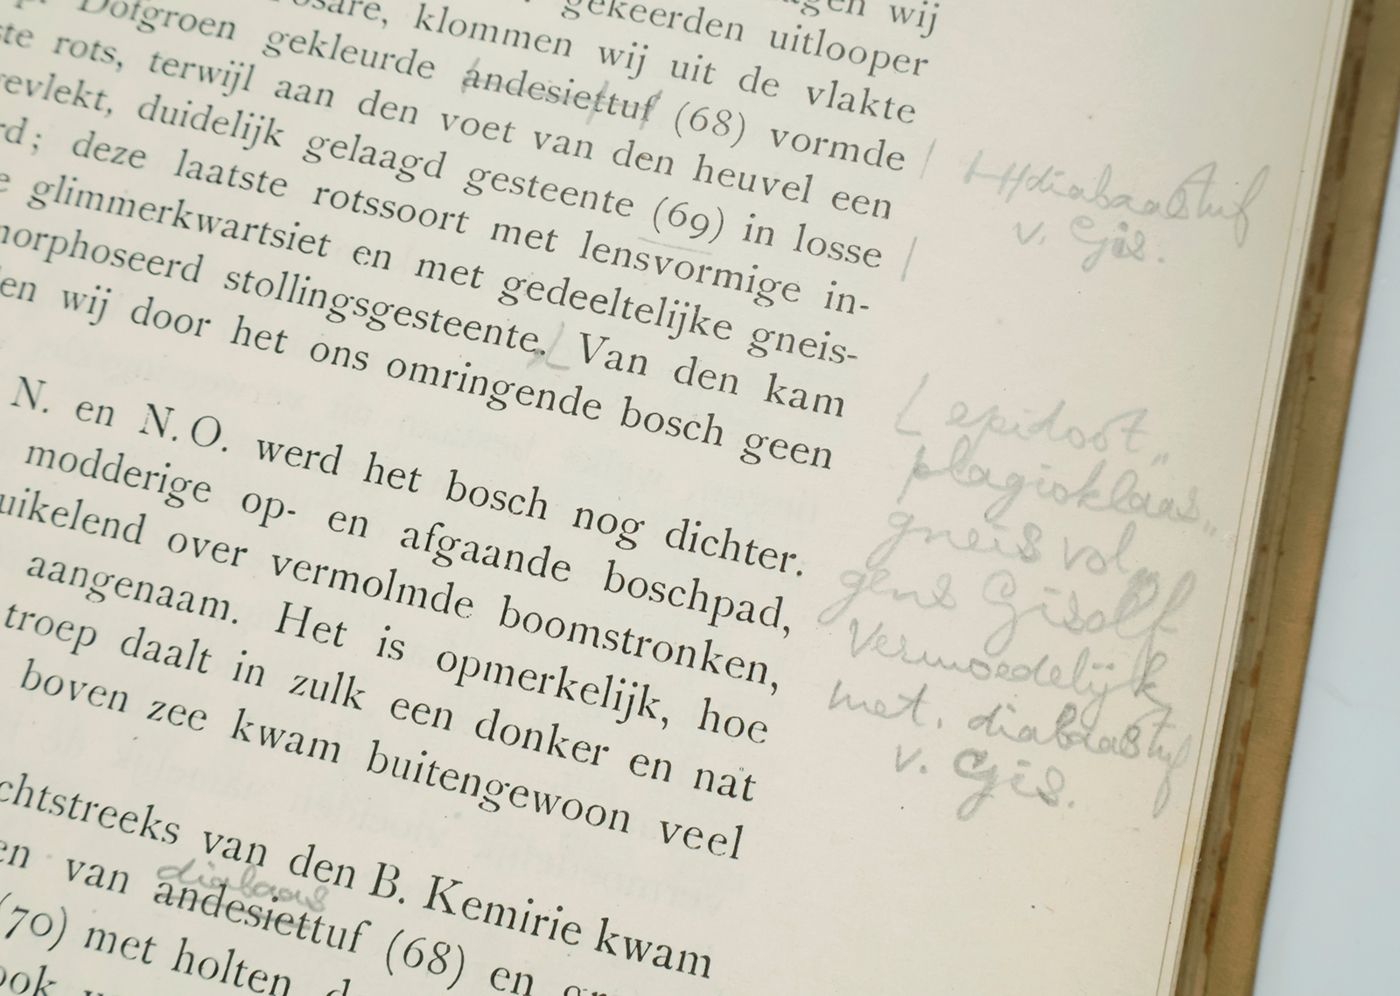 gen wij
gekeerden uitlooper
klommen wij uit de vlakte
Dofgroen gekleurde andesiettuf (68) vormde
te rots, terwijl aan den voet van den heuvel een
evlekt, duidelijk gelaagd gesteente (69) in losse
rd; deze laatste rotssoort met lensvormige in-
e glimmerkwartsiet en met gedeeltelijke gneis-
morphoseerd stollingsgesteente. Van den kam
en wij door het ons omringende bosch geen
N. en N.O. werd het bosch nog dichter.
modderige op- en afgaande boschpad,
uikelend over vermolmde boomstronken,
aangenaam. Het is opmerkelijk, hoe
troep daalt in zulk een donker en nat
boven zee kwam buitengewoon veel
chtstreeks van den B. Kemirie kwam
diabaas
en van andesiettuf (68) en
(70) met holten
ook
diabaastuf
v. Gis.
epidoot„
plagioklaas„
gneis vol„
gens Gisolf
vermoedelijk
met. diabaastuf
v. Gis.